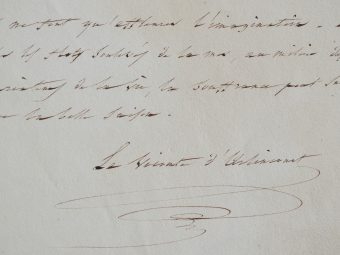 me font qu'effleurer l'imagination
les flots soulevés de la mer, au milieu
de la vie, la souffrance peut
la belle saison.
Le Vicomte d'Arlincourt